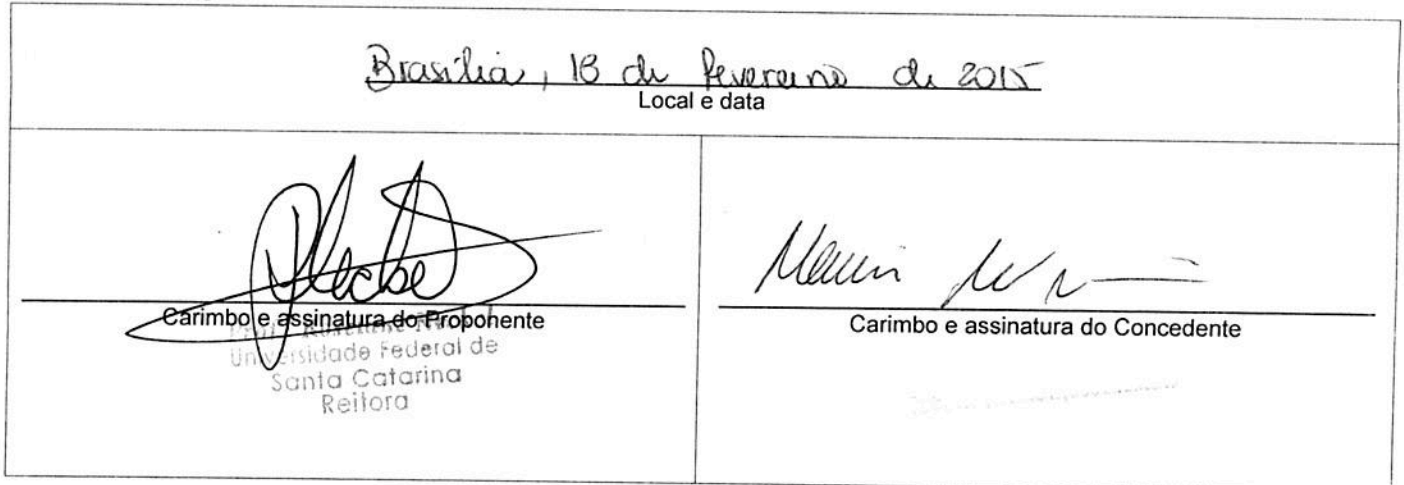 Brasília, 18 de fevereiro de 2015
Local e data
Carimbo e assinatura do Proponente
Universidade Federal de
Santa Catarina
Reitora
Carimbo e assinatura do Concedente